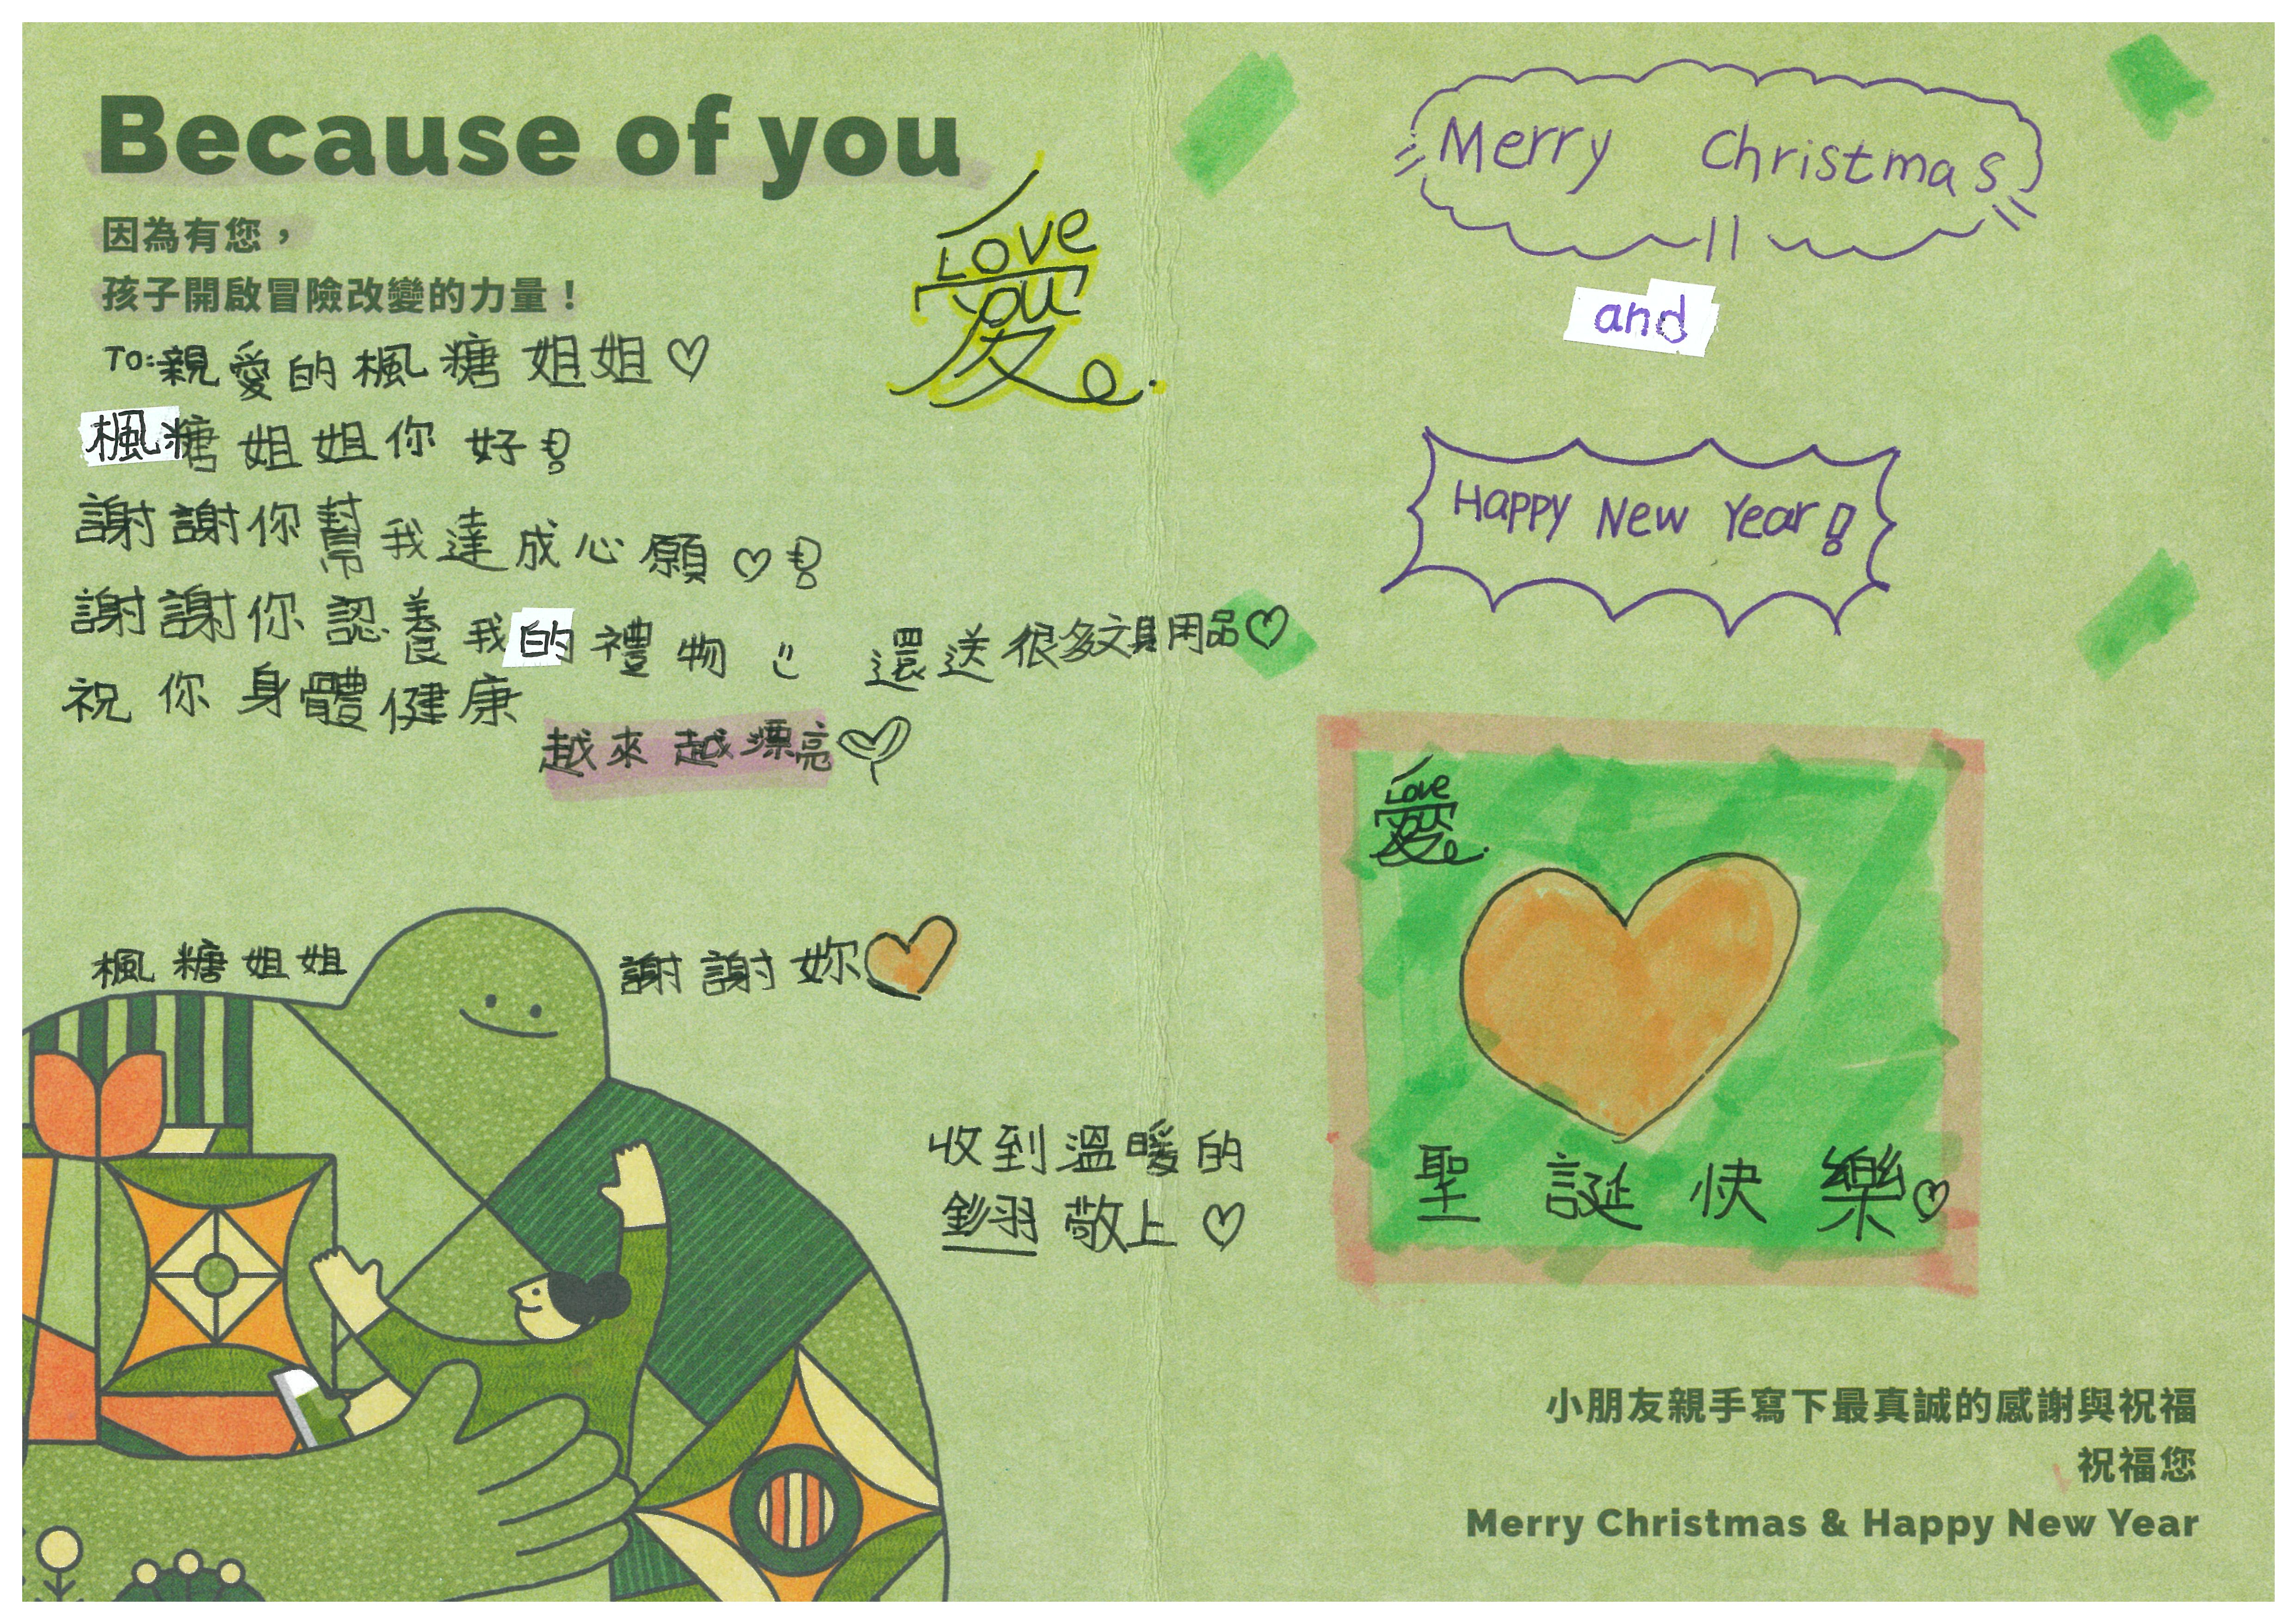 Because of you
因為有您，
孩子開啟冒險改變的力量！
愛
Love
you
TO:親愛的楓糖姐姐♡
楓糖姐姐你好!
謝謝你幫我達成心願♡!
謝謝你認養我的禮物 還送很多文具用品♡
祝你身體健康
越來越漂亮
楓糖姐姐 謝謝妳♡
收到溫暖的
羽 敬上♡
Merry Christmas !!
and
Happy New Year!
愛
Love
you
聖誕快樂♡
小朋友親手寫下最真誠的感謝與祝福
祝福您
Merry Christmas & Happy New Year